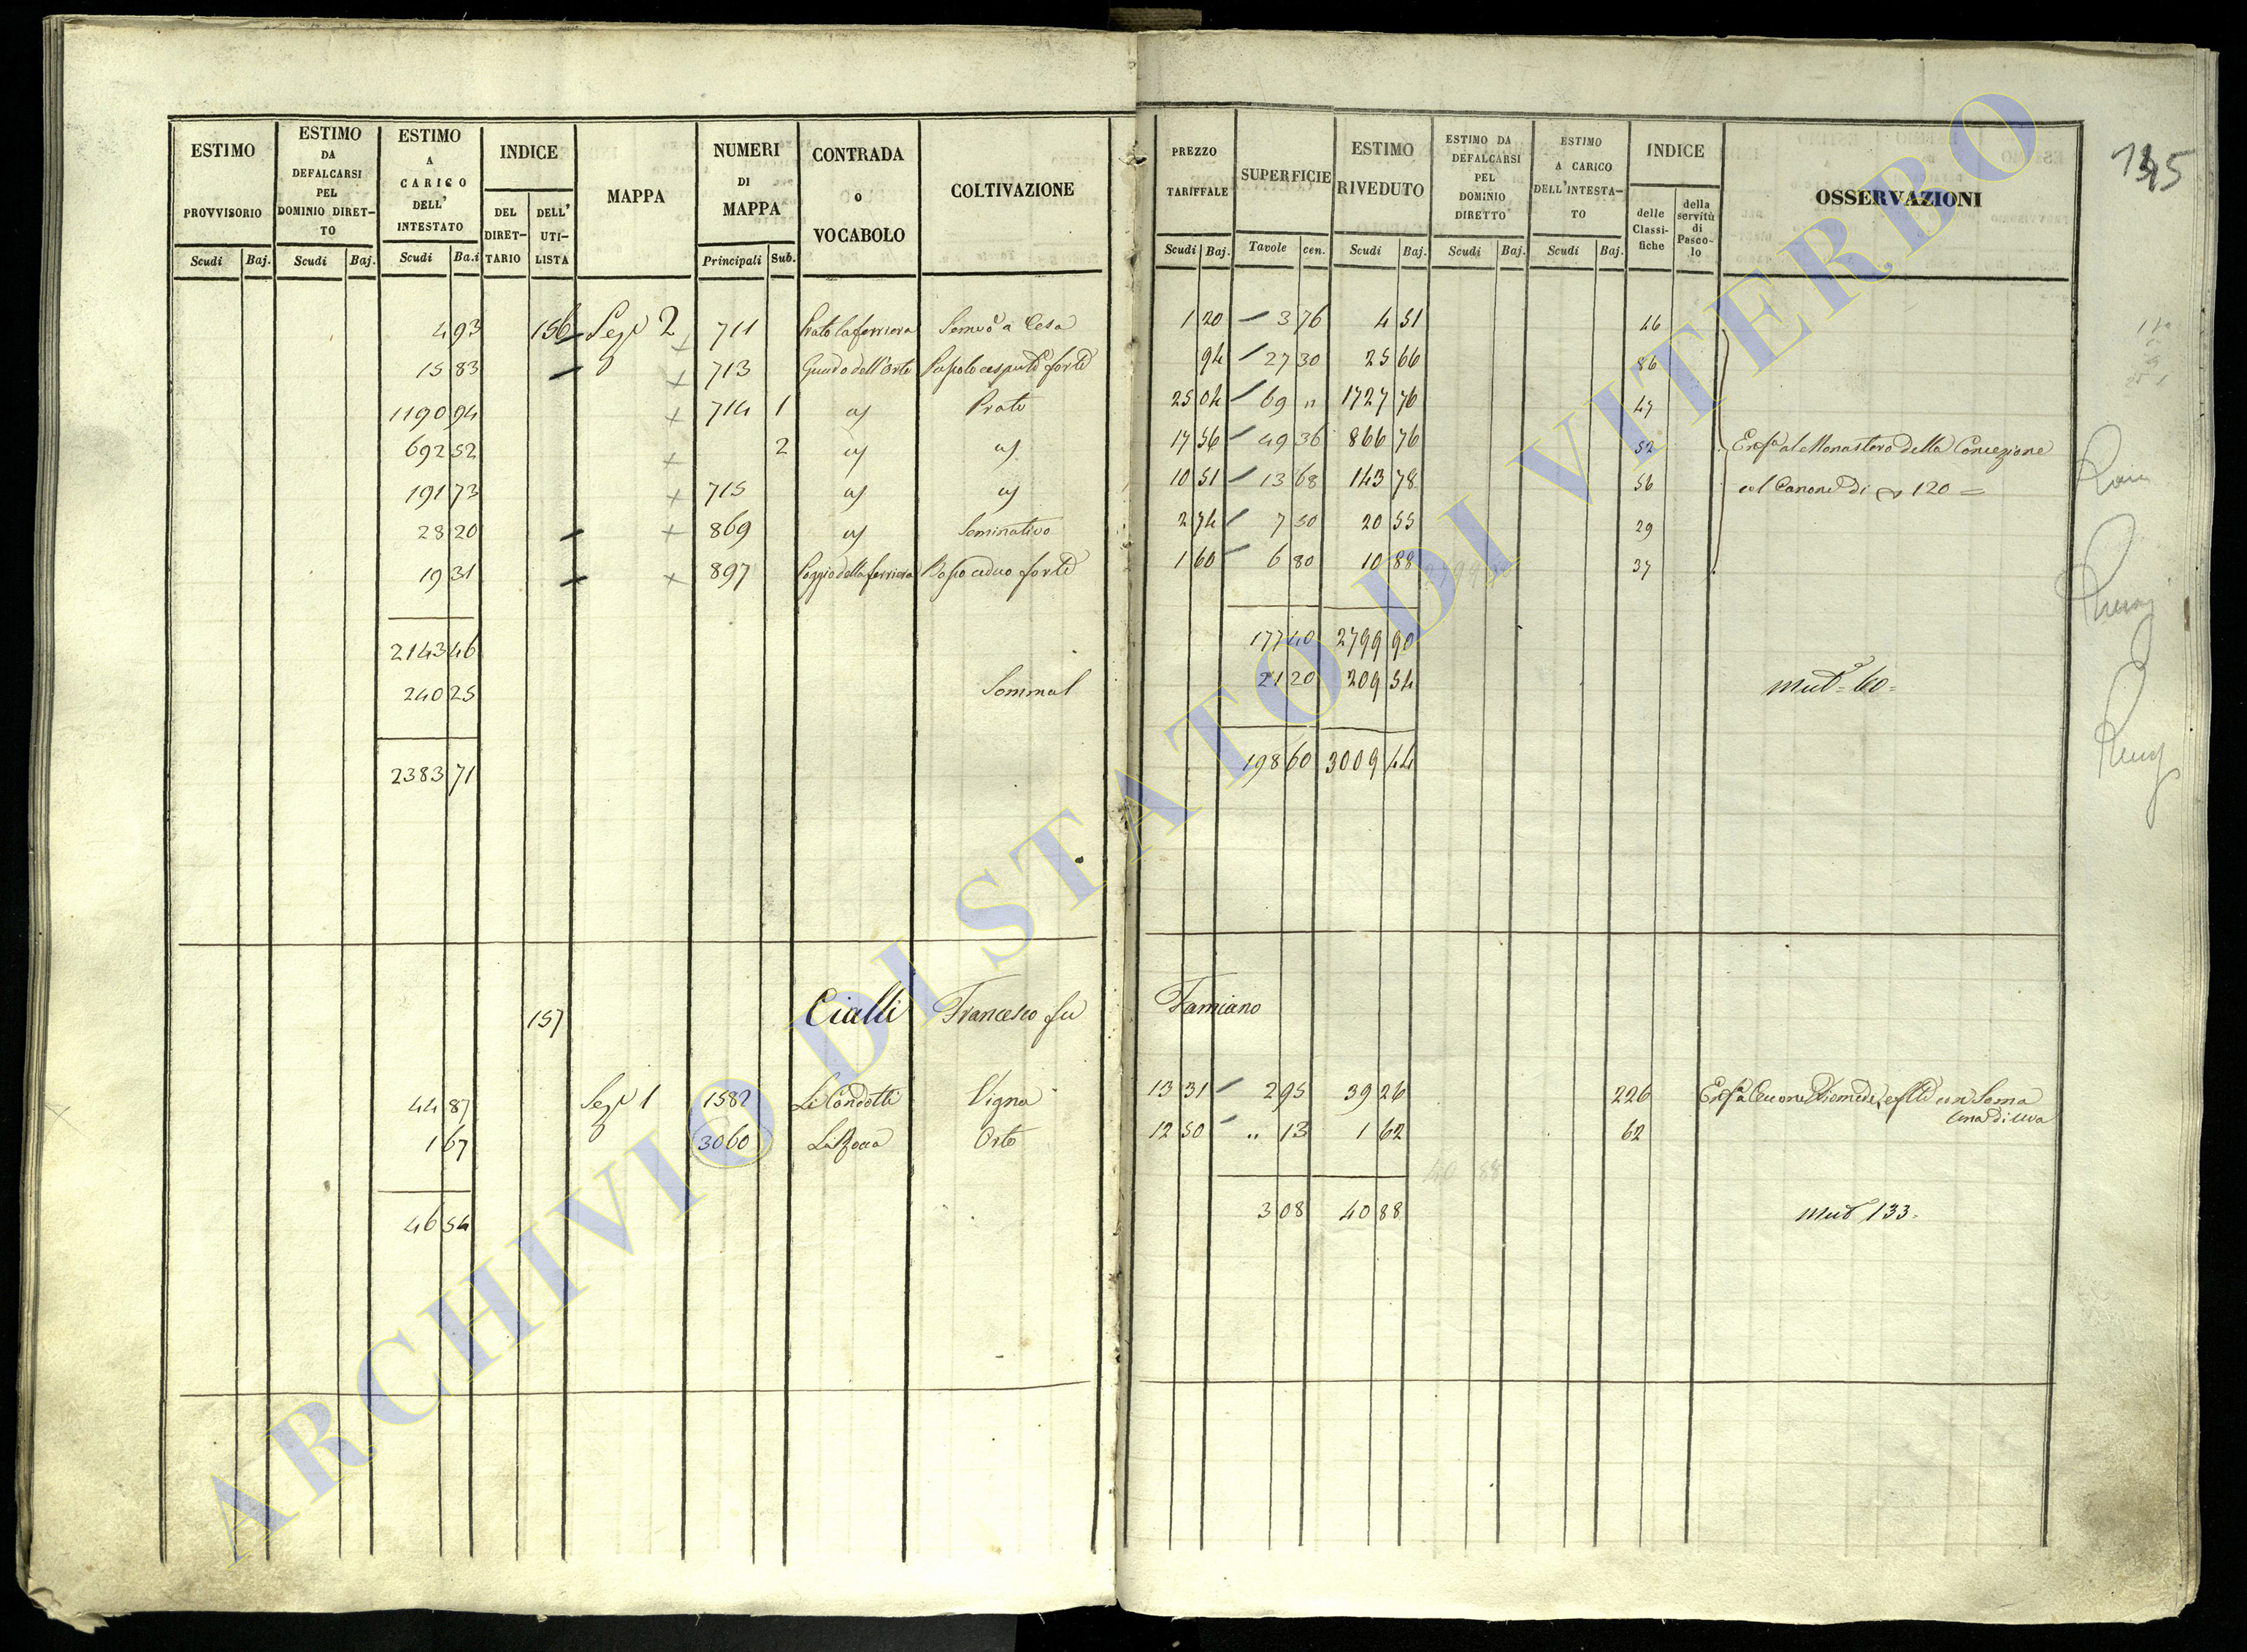 ESTIMO PROVVISORIO Scudi Baj.
ESTIMO DA DEFALCARSI PEL DOMINIO DIRETTO Scudi Baj.
ESTIMO A CARICO DELL' INTESTATO Scudi Ba.i
INDICE DEL DIRETTARIO DELL' UTILISTA
MAPPA
NUMERI DI MAPPA Principali Sub.
CONTRADA o VOCABOLO
COLTIVAZIONE
PREZZO TARIFFALE Scudi Baj.
SUPERFICIE Tavole cen.
ESTIMO RIVEDUTO Scudi Baj.
ESTIMO DA DEFALCARSI PEL DOMINIO DIRETTO Scudi Baj.
ESTIMO A CARICO DELL'INTESTATO Scudi Baj.
INDICE delle Classifiche della servitù di Pascolo
OSSERVAZIONI
4 93 156 Seze 2 711 Prato la ferriera 1 20 3 76 4 51 46
15 83 713 94 27 30 25 66 86
1190 94 714 1 Prato 25 04 69 " 1727 76 47
692 52 2 17 56 49 36 866 76 52 al Monastero della Concezione
191 73 715 10 51 13 68 143 78 56 col Canone di 120 =
28 20 869 Seminativo 2 74 7 50 20 55 29
19 31 897 Poggio della ferriera Bosco ceduo forte 1 60 6 80 10 88 37
2143 46 177 40 2799 90
240 25 21 20 209 54 Mut.e = 60 =
2383 71 198 60 3009 44
157 Cialli Francesco fu Famiano
44 87 Sez.e 1 1582 Li Condotti Vigna 13 31 2 95 39 26 226
1 67 3060 La Rocca Orto 12 50 " 13 1 62 62
40 88
46 54 3 08 40 88 Mut.e 133 =
ARCHIVIO DI STATO DI VITERBO